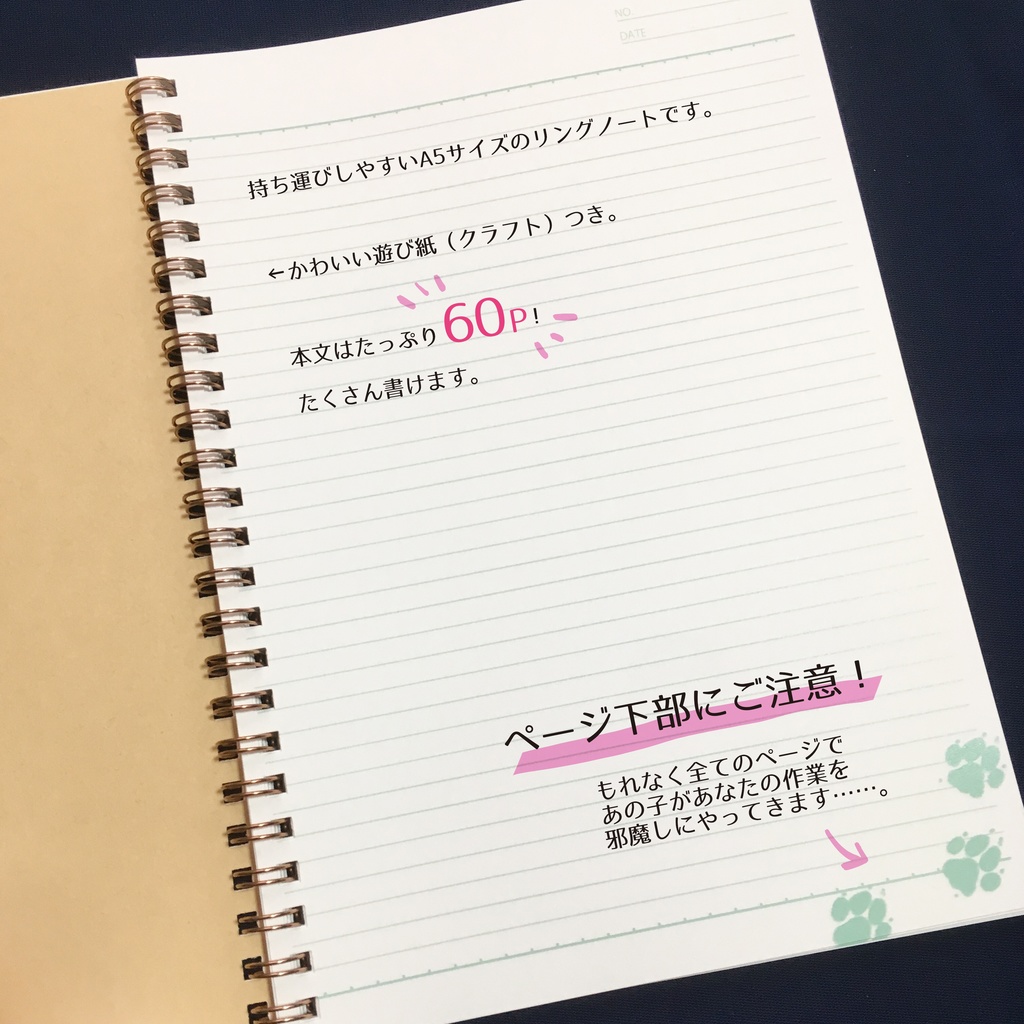 NO.
DATE
持ち運びしやすいA5サイズのリングノートです。
←かわいい遊び紙（クラフト）つき。
本文はたっぷり60P!
たくさん書けます。
ページ下部にご注意！
もれなく全てのページで
あの子があなたの作業を
邪魔しにやってきます……。